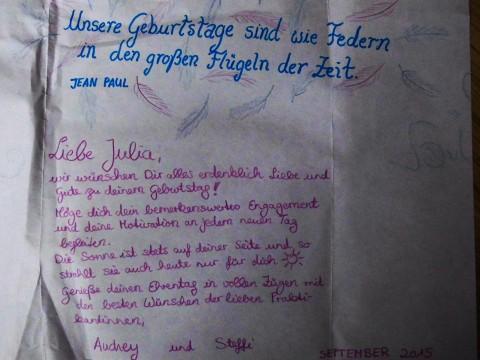 Unsere Geburtstage sind wie Federn
in den großen Flügeln der Zeit.
JEAN PAUL
Liebe Julia,
wir wünschen Dir alles erdenklich Liebe und
Gute zu deinem Geburtstag!
Möge dich dein bemerkenswertes Engagement
und deine Motivation an jedem neuen Tag
begleiten.
Die Sonne ist stets auf deiner Seite und so
strahlt sie auch heute nur für dich
Genieße deinen Ehrentag in vollen Zügen mit
den besten Wünschen der lieben Prakti-
kantinnen,
Audrey und Steffi
SEPTEMBER 2015